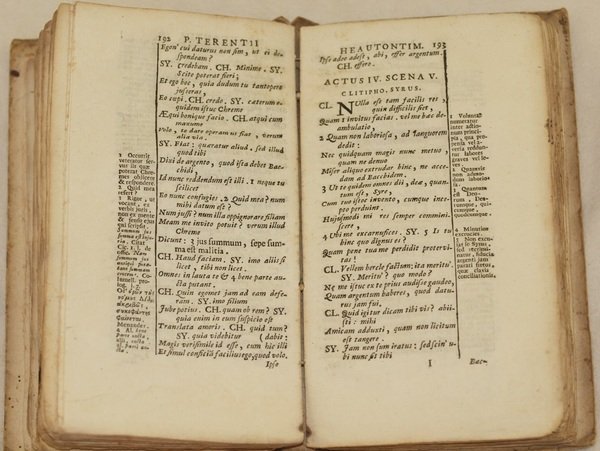 192 P. TERENTII
Egon' cui daturus non sim, ut ei de-
spondeam?
SY. Credebam. CH. Minime. SY.
Scite poterat fieri;
Et ego hoc, quia dudum tu tantopere
jusseras,
Eo cœpi. CH. credo. SY. caterum e-
quidem istuc Chreme
Æqui bonique facio. CH. atqui cum
maxume
Volo, te dare operam ut fiat, verum
alia via.
SY. Fiat: quæratur aliud. sed illud
quod tibi
Dixi de argento, quod ista debet Bac-
chidi,
Id nunc reddendum est illi. 1 neque tu
scilicet
Eo nunc confugies: 2 Quid mea? num
mihi datum est?
Num jussi? num illa oppignorare filiam
Meam me invito potuit? verum illud
Chreme
Dicunt: 3 jus summum, sæpe sum-
ma est malitia.
CH. Haud faciam. SY. imo aliis si
licet, tibi non licet.
Omnes in lauta te & 4 bene parte au-
cta putant.
CH. Quin egomet jam ad eam defe-
ram. SY. imo filium
Jube potius. CH. quam ob rem? SY.
quia enim in eum suspicio est
Translata amoris. CH. quid tum?
SY. quia videbitur (dabit:
Magis verisimile id esse, cum hic illi
Et simul conficiā facilius ego, quod volo.
Ipse
1 Occurrit
veterator ser-
vus iis quæ
poterat Chre-
mes objicere
& respondere.
2 Quid mea
refert?
3 Rigor, ut
vocant, ex
verbis juris,
non ex mente
& sensu ejus
qui scripsit.
Citat
Cic. l. 1. de
HEAUTONTIM. 193
Ipse adeo adest, abi, effer argentum.
CH. effero.
ACTUS IV. SCENA V.
CLITIPHO. SYRUS.
CL. Nulla est tam facilis res,
quin difficilis siet,
Quam 1 invitus facias. vel me hæc de-
ambulatio,
2 Quam non laboriosa, ad languorem
dedit:
Nec quidquam magis nunc metuo,
quam ne denuo
Miser aliquo extrudar hinc, ne acce-
dam ad Bacchidem.
3 Ut te quidem omnes dii, deæ, quan-
tum est, Syre,
Cum tuo istoc invento, cumque ince-
pto perduint.
Hujusmodi mi res semper commini-
scere,
4 Ubi me excarnufices. SY. 5 Is tu
hinc quo dignus es?
Quam pene tua me perdidit protervi-
tas!
CL. Vellem hercle factum; ita meritu'.
SY. Meritu'? quo modo?
Næ me istuc ex te prius audisse gaudeo,
Quam argentum haberes, quod datu-
rus jam fui.
CL. Quid igitur dicam tibi vis? abii-
sti: mihi
Amicam adduxti, quam non licitum
est tangere.
SY. Jam non sum iratus: sed scin' u-
bi nunc sit tibi
I Bac-
1 Volunt
numerotur
inter actio-
num princi-
pia, qua pro-
pensa vel a-
versa reddun-
tur labores
graves vel le-
ves.
2 Quamvis
non admo-
dum laborio-
sa.
3 Quantum
est Deû-
rum. Deus-
cumque, qui-
cumque,
quodcumque.
4 Minutim
excrucies.
5 Non excu-
lat